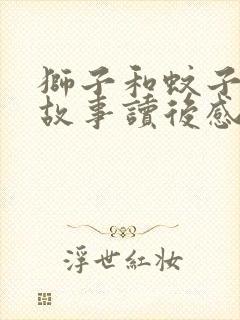 獅子和蚊子
故事讀後感
浮世紅妝